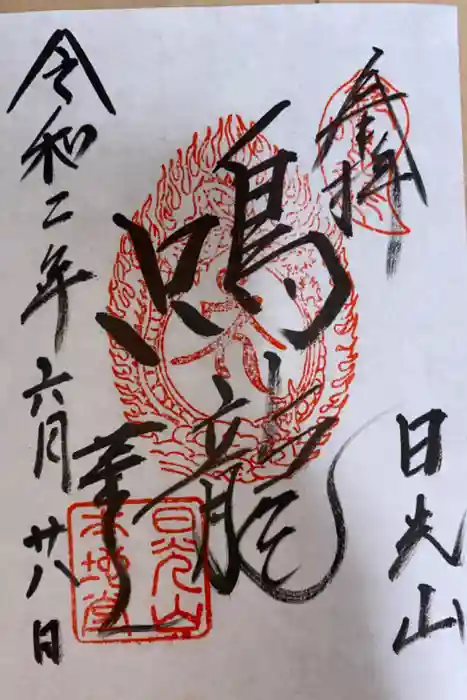 奉拝
日光山
鳴龍
本地堂
薬
令和二年六月廿八日